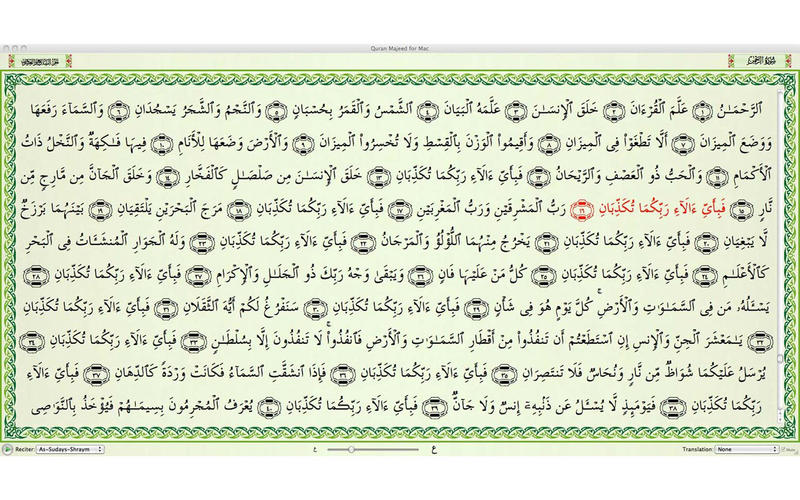 Quran Majeed for Mac
ٱلرَّحْمَـٰنُ ١ عَلَّمَ ٱلْقُرْءَانَ ٢ خَلَقَ ٱلْإِنسَـٰنَ ٣ عَلَّمَهُ ٱلْبَيَانَ ٤ ٱلشَّمْسُ وَٱلْقَمَرُ بِحُسْبَانٍ ٥ وَٱلنَّجْمُ وَٱلشَّجَرُ يَسْجُدَانِ ٦ وَٱلسَّمَآءَ رَفَعَهَا
وَوَضَعَ ٱلْمِيزَانَ ٧ أَلَّا تَطْغَوْا۟ فِى ٱلْمِيزَانِ ٨ وَأَقِيمُوا۟ ٱلْوَزْنَ بِٱلْقِسْطِ وَلَا تُخْسِرُوا۟ ٱلْمِيزَانَ ٩ وَٱلْأَرْضَ وَضَعَهَا لِلْأَنَامِ ١٠ فِيهَا فَـٰكِهَةٌ وَٱلنَّخْلُ ذَاتُ
ٱلْأَكْمَامِ ١١ وَٱلْحَبُّ ذُو ٱلْعَصْفِ وَٱلرَّيْحَانُ ١٢ فَبِأَىِّ ءَالَآءِ رَبِّكُمَا تُكَذِّبَانِ ١٣ خَلَقَ ٱلْإِنسَـٰنَ مِن صَلْصَـٰلٍ كَٱلْفَخَّارِ ١٤ وَخَلَقَ ٱلْجَآنَّ مِن مَّارِجٍ مِّن
نَّارٍ ١٥ فَبِأَىِّ ءَالَآءِ رَبِّكُمَا تُكَذِّبَانِ ١٦ رَبُّ ٱلْمَشْرِقَيْنِ وَرَبُّ ٱلْمَغْرِبَيْنِ ١٧ فَبِأَىِّ ءَالَآءِ رَبِّكُمَا تُكَذِّبَانِ ١٨ مَرَجَ ٱلْبَحْرَيْنِ يَلْتَقِيَانِ ١٩ بَيْنَهُمَا بَرْزَخٌ
لَّا يَبْغِيَانِ ٢٠ فَبِأَىِّ ءَالَآءِ رَبِّكُمَا تُكَذِّبَانِ ٢١ يَخْرُجُ مِنْهُمَا ٱللُّؤْلُؤُ وَٱلْمَرْجَانُ ٢٢ فَبِأَىِّ ءَالَآءِ رَبِّكُمَا تُكَذِّبَانِ ٢٣ وَلَهُ ٱلْجَوَارِ ٱلْمُنشَـَٔاتُ فِى ٱلْبَحْرِ
كَٱلْأَعْلَـٰمِ ٢٤ فَبِأَىِّ ءَالَآءِ رَبِّكُمَا تُكَذِّبَانِ ٢٥ كُلُّ مَنْ عَلَيْهَا فَانٍ ٢٦ وَيَبْقَىٰ وَجْهُ رَبِّكَ ذُو ٱلْجَلَـٰلِ وَٱلْإِكْرَامِ ٢٧ فَبِأَىِّ ءَالَآءِ رَبِّكُمَا تُكَذِّبَانِ ٢٨
يَسْـَٔلُهُۥ مَن فِى ٱلسَّمَـٰوَٰتِ وَٱلْأَرْضِ ۚ كُلَّ يَوْمٍ هُوَ فِى شَأْنٍ ٢٩ فَبِأَىِّ ءَالَآءِ رَبِّكُمَا تُكَذِّبَانِ ٣٠ سَنَفْرُغُ لَكُمْ أَيُّهَ ٱلثَّقَلَانِ ٣١ فَبِأَىِّ ءَالَآءِ رَبِّكُمَا تُكَذِّبَانِ
٣٢ يَـٰمَعْشَرَ ٱلْجِنِّ وَٱلْإِنسِ إِنِ ٱسْتَطَعْتُمْ أَن تَنفُذُوا۟ مِنْ أَقْطَارِ ٱلسَّمَـٰوَٰتِ وَٱلْأَرْضِ فَٱنفُذُوا۟ ۚ لَا تَنفُذُونَ إِلَّا بِسُلْطَـٰنٍ ٣٣ فَبِأَىِّ ءَالَآءِ رَبِّكُمَا تُكَذِّبَانِ ٣٤
يُرْسَلُ عَلَيْكُمَا شُوَاظٌ مِّن نَّارٍ وَنُحَاسٌ فَلَا تَنتَصِرَانِ ٣٥ فَبِأَىِّ ءَالَآءِ رَبِّكُمَا تُكَذِّبَانِ ٣٦ فَإِذَا ٱنشَقَّتِ ٱلسَّمَآءُ فَكَانَتْ وَرْدَةً كَٱلدِّهَانِ ٣٧ فَبِأَىِّ ءَالَآءِ
رَبِّكُمَا تُكَذِّبَانِ ٣٨ فَيَوْمَئِذٍ لَّا يُسْـَٔلُ عَن ذَنۢبِهِۦٓ إِنسٌ وَلَا جَآنٌّ ٣٩ فَبِأَىِّ ءَالَآءِ رَبِّكُمَا تُكَذِّبَانِ ٤٠ يُعْرَفُ ٱلْمُجْرِمُونَ بِسِيمَـٰهُمْ فَيُؤْخَذُ بِٱلنَّوَٰصِى
Reciter: As-Sudays-Shraym ع ع Translation: None Mute